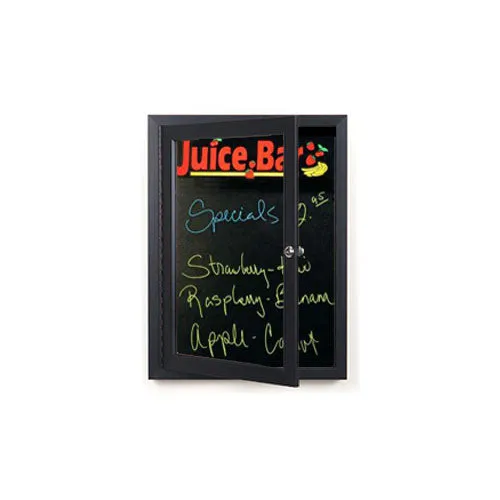 Juice.Bar
Specials 2.95
Strawberry-Kiwi
Raspberry-Banana
Apple-Carrot